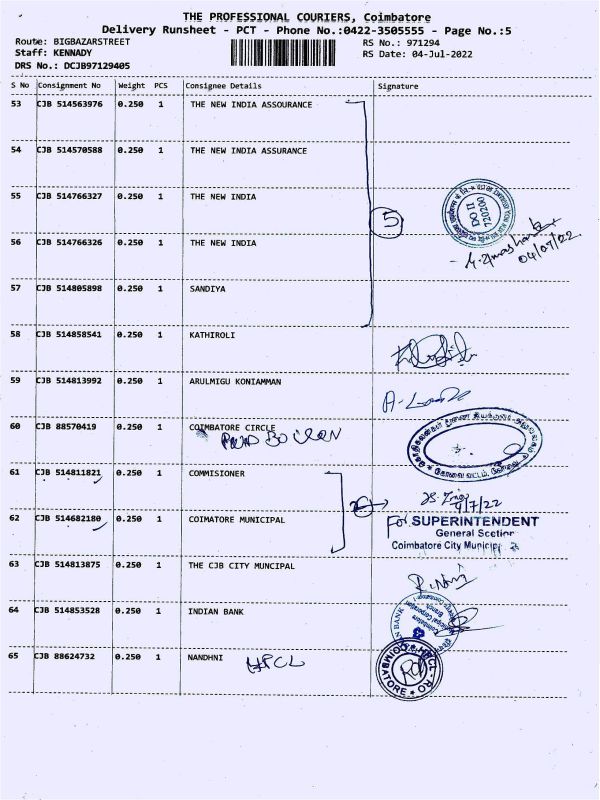 THE PROFESSIONAL COURIERS, Coimbatore
Delivery Runsheet - PCT - Phone No.:0422-3505555 - Page No.:5
Route: BIGBAZARSTREET
Staff: KENNADY
DRS No.: DCJB97129405
RS No.: 971294
RS Date: 04-Jul-2022
S No Consignment No Weight PCS Consignee Details Signature
53 CJB 514563976 0.250 1 THE NEW INDIA ASSOURANCE
54 CJB 514570588 0.250 1 THE NEW INDIA ASSURANCE
55 CJB 514766327 0.250 1 THE NEW INDIA
DO II
720200
5
56 CJB 514766326 0.250 1 THE NEW INDIA
04/07/22
57 CJB 514805898 0.250 1 SANDIYA
58 CJB 514858541 0.250 1 KATHIROLI
59 CJB 514813992 0.250 1 ARULMIGU KONIAMMAN
60 CJB 88570419 0.250 1 COIMBATORE CIRCLE
61 CJB 514811821 0.250 1 COMMISIONER
4/7/22
62 CJB 514682180 0.250 1 COIMATORE MUNICIPAL
For SUPERINTENDENT
General Scetion
Coimbatore City Municipal
63 CJB 514813875 0.250 1 THE CJB CITY MUNCIPAL
64 CJB 514853528 0.250 1 INDIAN BANK
65 CJB 88624732 0.250 1 NANDHNI
HPCL
HPCL - RO
COIMBATORE